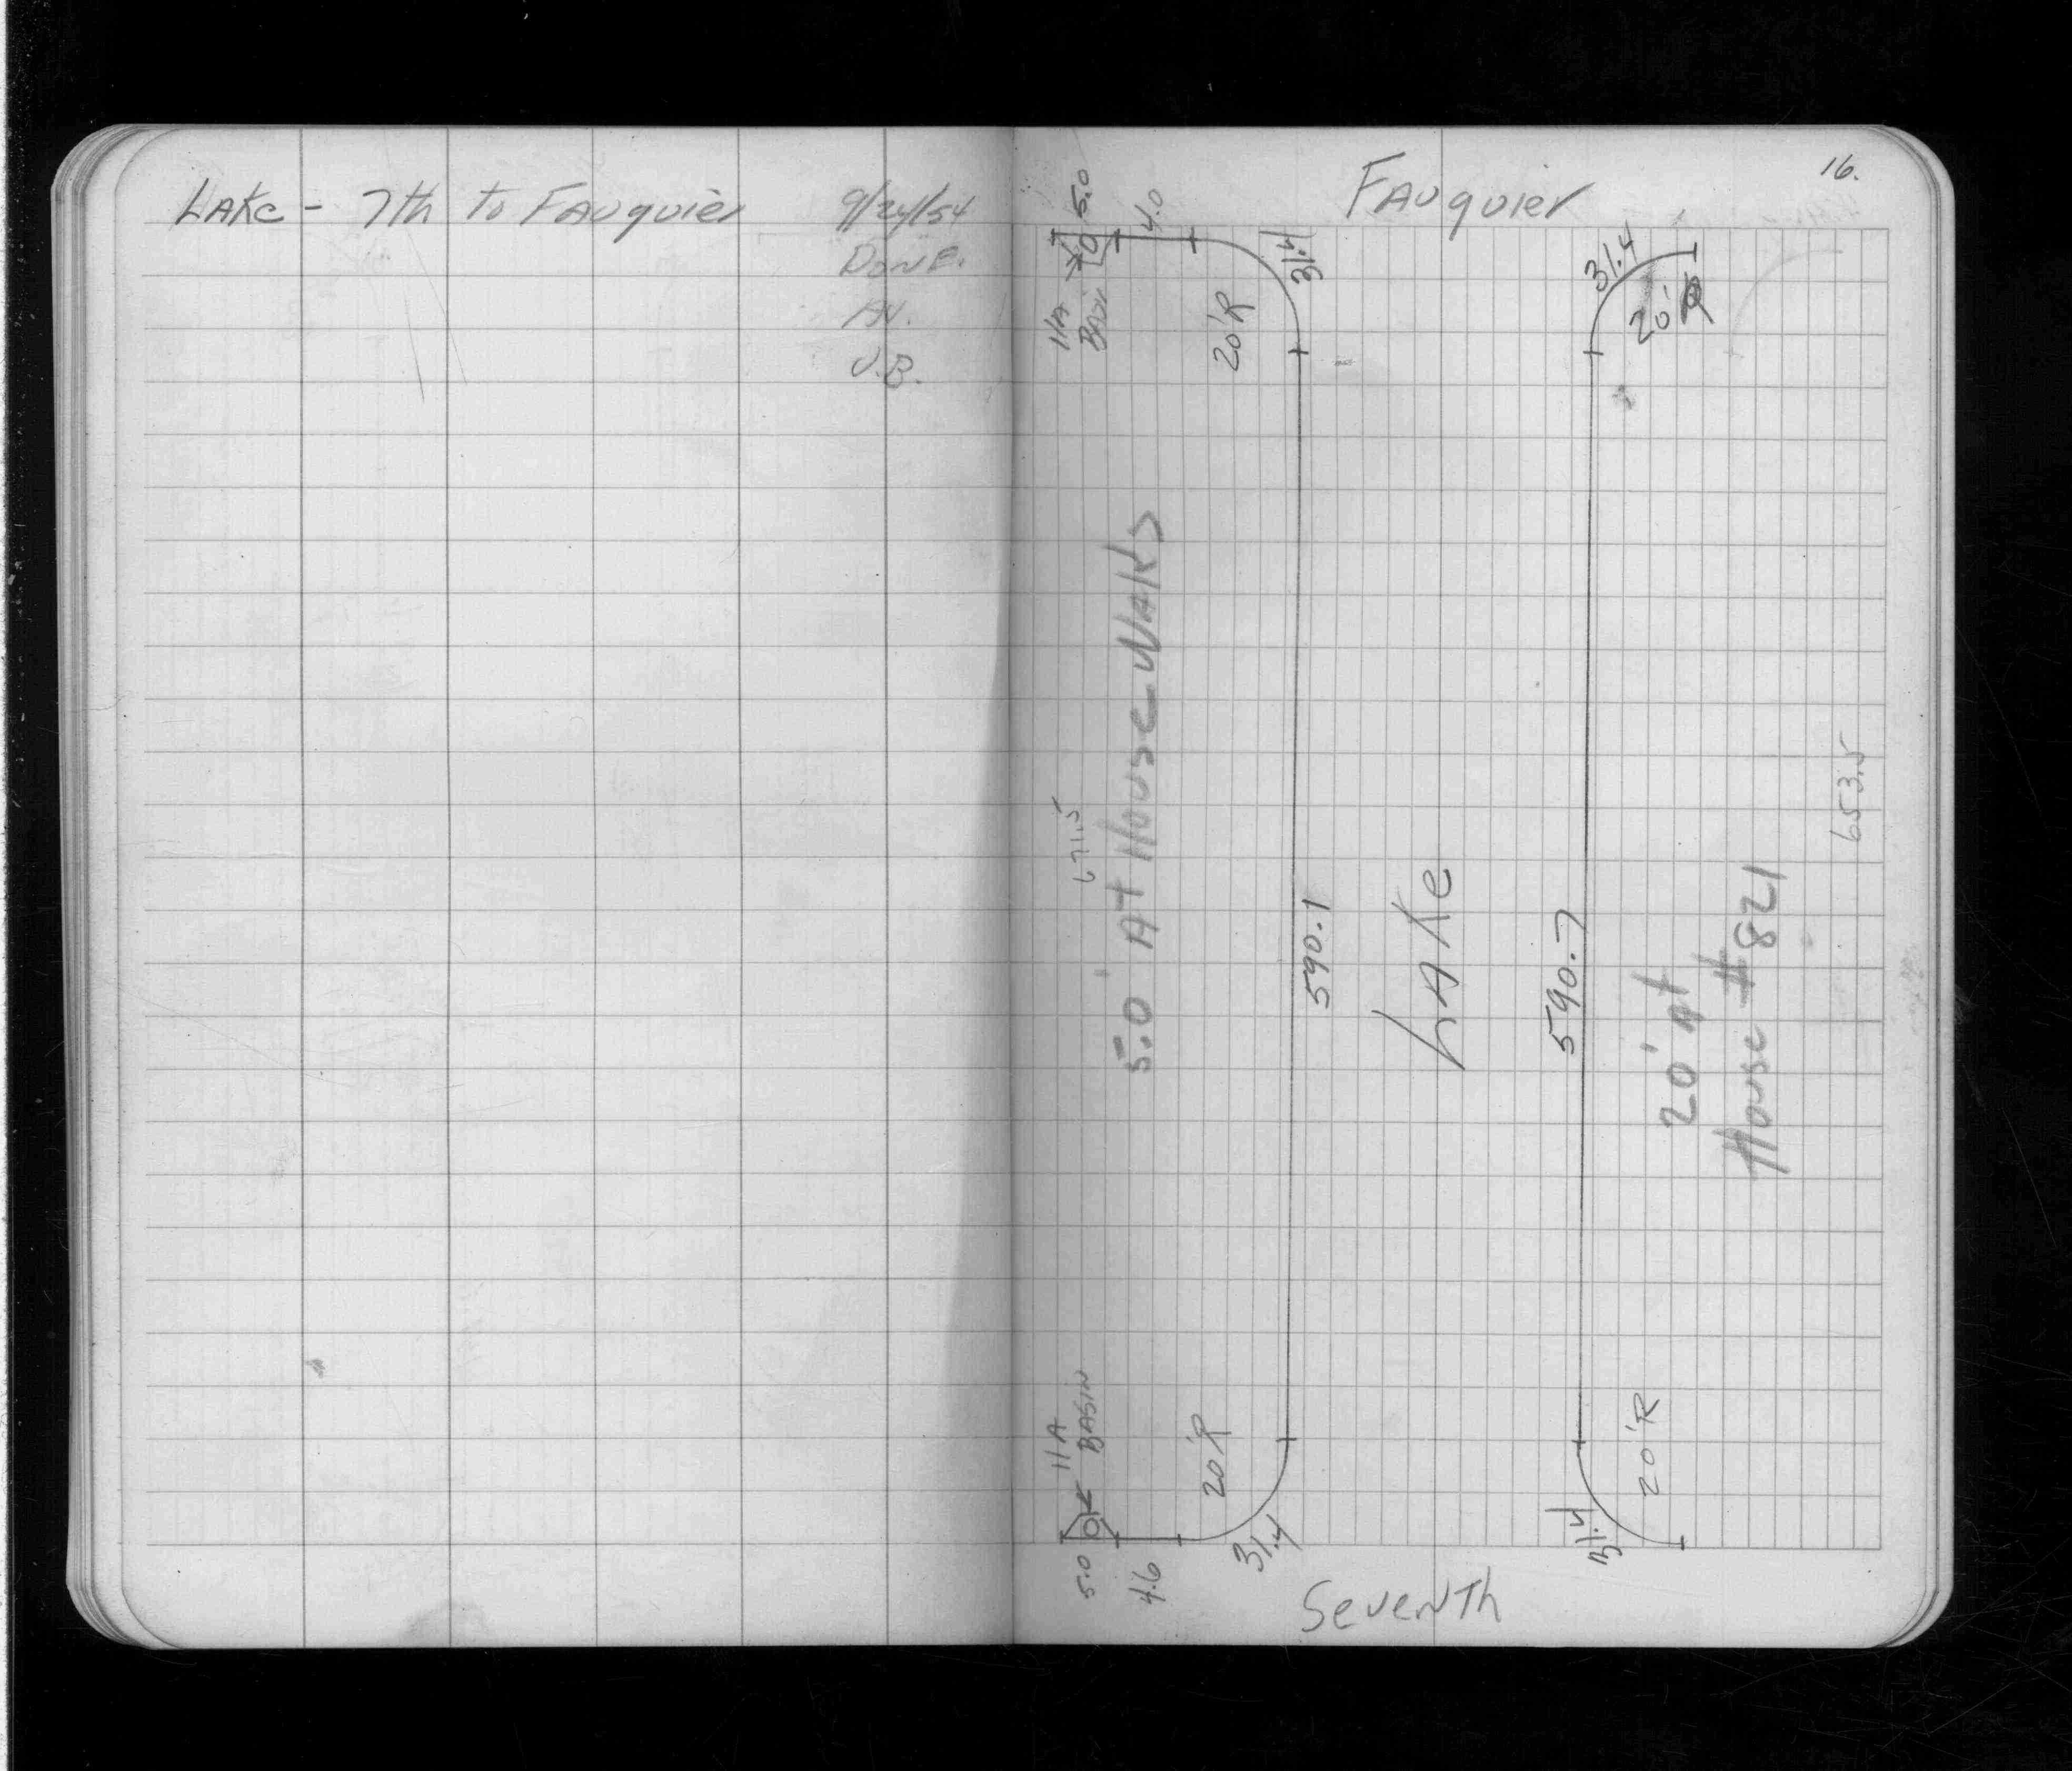 Lake - 7th to Fauquier 9/24/54
Done.
J.B.
16.
Fauquier
5.0
4.0
31.4
31.4
11A
Basin
20'R
20'R
5.0' At House Walks
671.5
590.1
Lake
590.7
20' At
House # 821
653.5
11A
Basin
20'R
20'R
5.0
4.6
31.4
31.4
Seventh